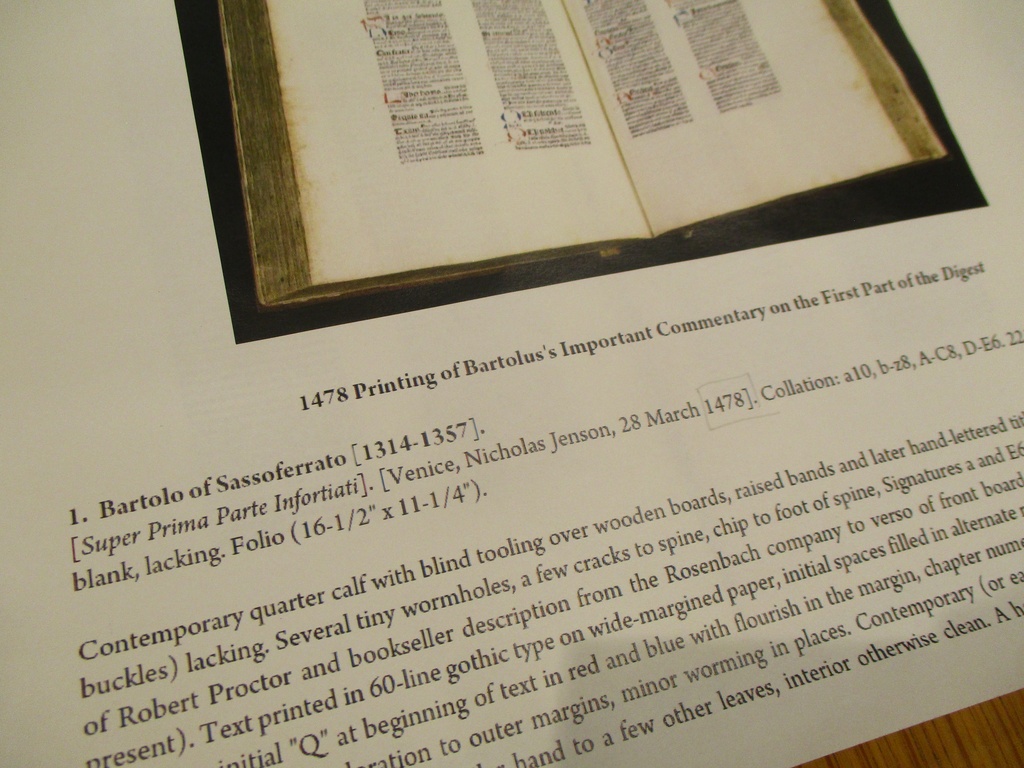 1478 Printing of Bartolus's Important Commentary on the First Part of the Digest
1. Bartolo of Sassoferrato [1314-1357].
[Super Prima Parte Infortiati]. [Venice, Nicholas Jenson, 28 March 1478]. Collation: a10, b-z8, A-C8, D-E6. 22
blank, lacking. Folio (16-1/2" x 11-1/4").
Contemporary quarter calf with blind tooling over wooden boards, raised bands and later hand-lettered
buckles) lacking. Several tiny wormholes, a few cracks to spine, chip to foot of spine, Signatures a and E6
of Robert Proctor and bookseller description from the Rosenbach company to verso of front board
present). Text printed in 60-line gothic type on wide-margined paper, initial spaces filled in alternate
initial "Q" at beginning of text in red and blue with flourish in the margin, chapter
to outer margins, minor worming in places. Contemporary (or
hand to a few other leaves, interior otherwise clean. A